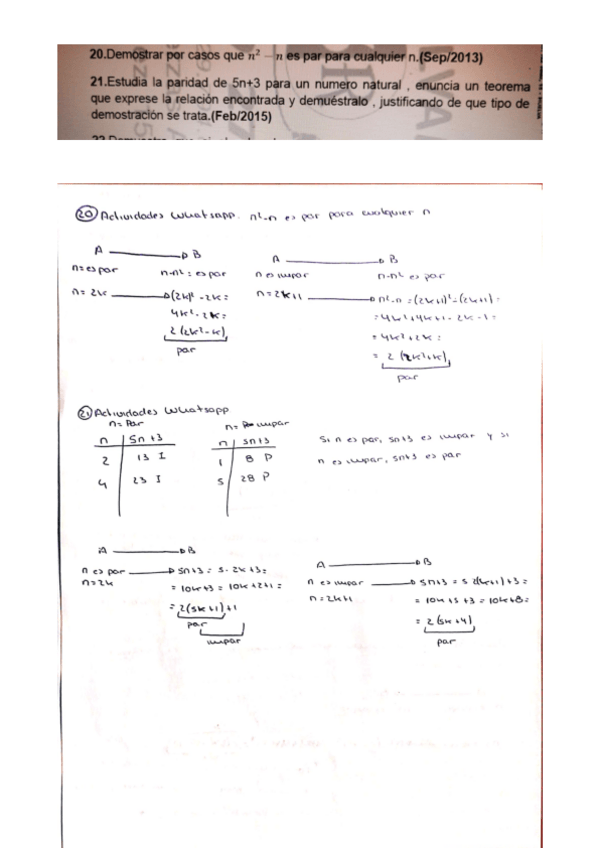 20.Demostrar por casos que n² – n es par para cualquier n.(Sep/2013)
21.Estudia la paridad de 5n+3 para un numero natural , enuncia un teorema
que exprese la relación encontrada y demuéstralo , justificando de que tipo de
demostración se trata.(Feb/2015)
20 Actividades Whatsapp. n²-n es par para cualquier n
A B
n=es par n-n²: es par
n=2k (2k)²-2k=
4k²-2k=
2(2k²-k)
par
A B
n es impar n-n² es par
n=2k+1 n²-n=(2k+1)²-(2k+1)=
=4k²+4k+1-2k-1=
=4k²+2k=
=2(2k²+k)
par
21 Actividades Whatsapp
n=Par
n 5n+3
2 13 I
4 23 I
n= impar
n 5n+3
1 8 P
5 28 P
Si n es par, 5n+3 es impar y si
n es impar, 5n+3 es par
A B
n es par 5n+3=5·2k+3=
n=2k =10k+3=10k+2+1=
=2(5k+1)+1
par
impar
A B
n es impar 5n+3=5(2k+1)+3=
n=2k+1 =10k+5+3=10k+8=
=2(5k+4)
par